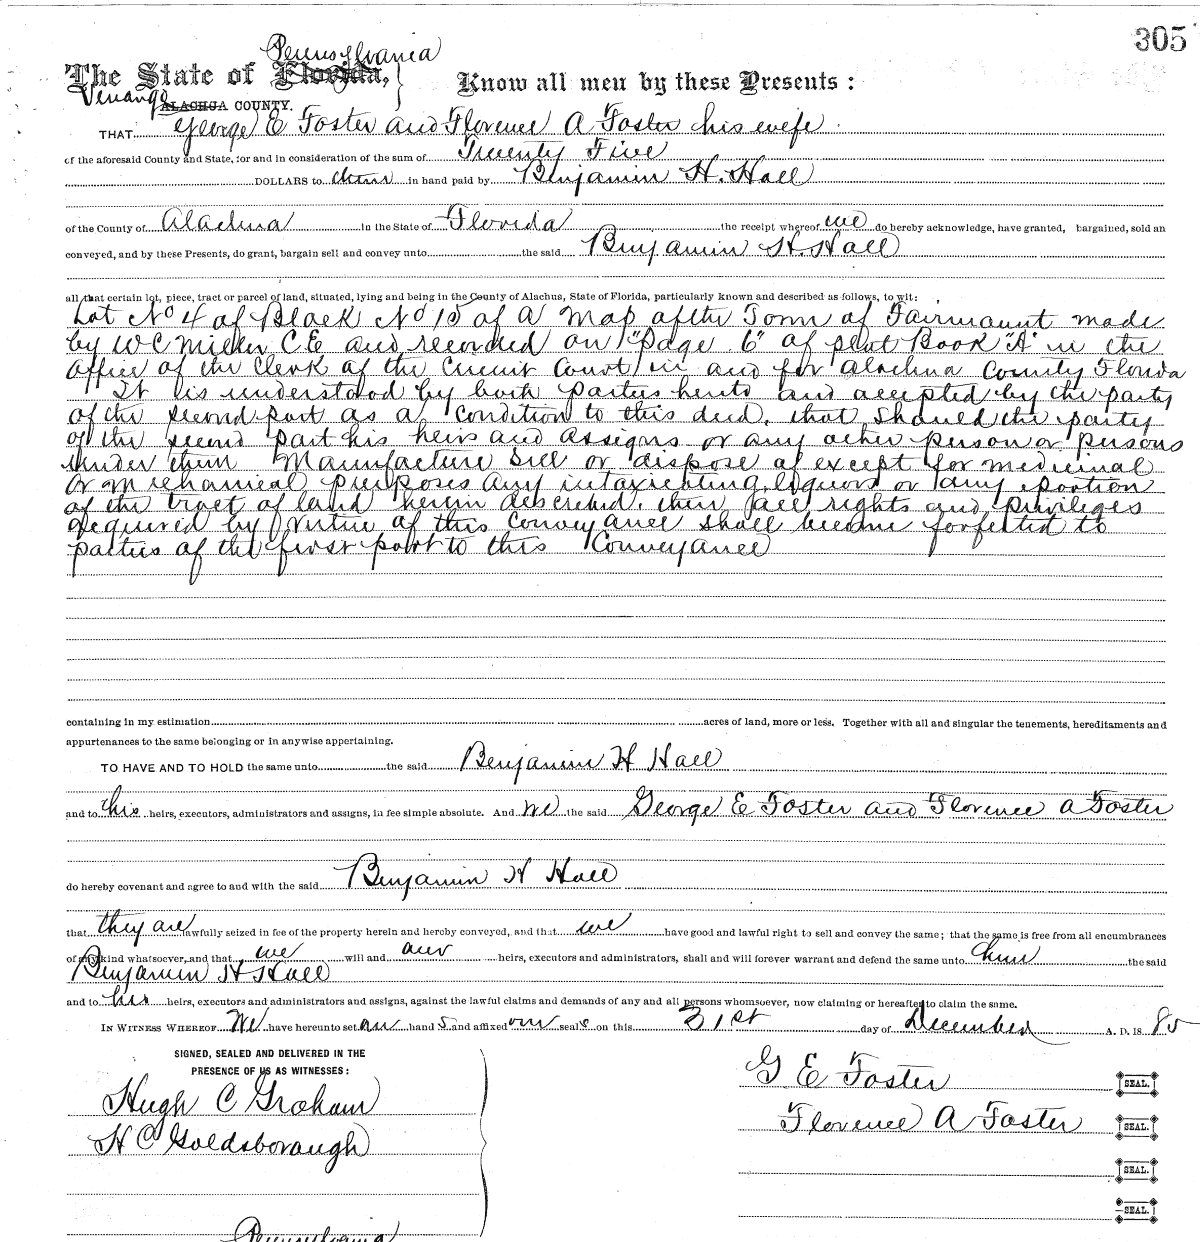 305
Pennsylvania
The State of Florida,
Venango
ALACHUA COUNTY.
Know all men by these Presents :
THAT George E Foster and Florence A Foster his wife
of the aforesaid County and State, for and in consideration of the sum of Twenty Five
DOLLARS to them in hand paid by Benjamin H. Hall
of the County of Alachua in the State of Florida the receipt whereof we do hereby acknowledge, have granted, bargained, sold an
conveyed, and by these Presents, do grant, bargain sell and convey unto the said Benjamin H. Hall
all that certain lot, piece, tract or parcel of land, situated, lying and being in the County of Alachua, State of Florida, particularly known and described as follows, to wit:
Lot No 4 of Block No 15 of a Map of the Town of Fairmount made
by W C Miller C E and recorded on "Page 6" of plat Book "A" in the
office of the Clerk of the Circuit Court in and for Alachua County Florida
It is understood by both parties hereto and accepted by the party
of the second part as a condition to this deed, that should the party
of the second part his heirs and assigns or any other person or persons
under them Manufacture Sell or dispose of except for medicinal
or mechanical purposes any intoxicating liquors or any portion
of the tract of land herein described, then all rights and privileges
acquired by virtue of this conveyance shall become forfeited to
parties of the first part to this Conveyance
containing in my estimation acres of land, more or less. Together with all and singular the tenements, hereditaments and
appurtenances to the same belonging or in anywise appertaining.
TO HAVE AND TO HOLD the same unto the said Benjamin H Hall
and to his heirs, executors, administrators and assigns, in fee simple absolute. And we the said George E Foster and Florence A Foster
do hereby covenant and agree to and with the said Benjamin H Hall
that they are lawfully seized in fee of the property herein and hereby conveyed, and that we have good and lawful right to sell and convey the same; that the same is free from all encumbrances
of any kind whatsoever, and that we will and our heirs, executors and administrators, shall and will forever warrant and defend the same unto him the said
Benjamin H Hall
and to his heirs, executors and administrators and assigns, against the lawful claims and demands of any and all persons whomsoever, now claiming or hereafter to claim the same.
IN WITNESS WHEREOF We have hereunto set our hand s and affixed our seal s on this 31st day of December A. D. 18 85
SIGNED, SEALED AND DELIVERED IN THE
PRESENCE OF US AS WITNESSES:
Hugh C Graham
H C Goldsborough
G E Foster SEAL.
Florence A Foster SEAL.
SEAL.
SEAL.
Pennsylvania